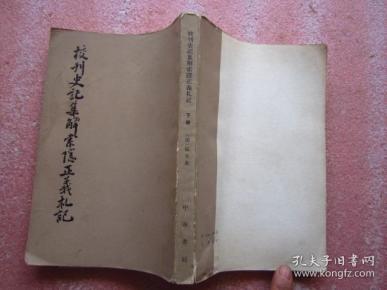 校刊史記集解索隱正義札記
校刊史記集解索隱正義札記
下冊
中華書局
孔夫子旧书网